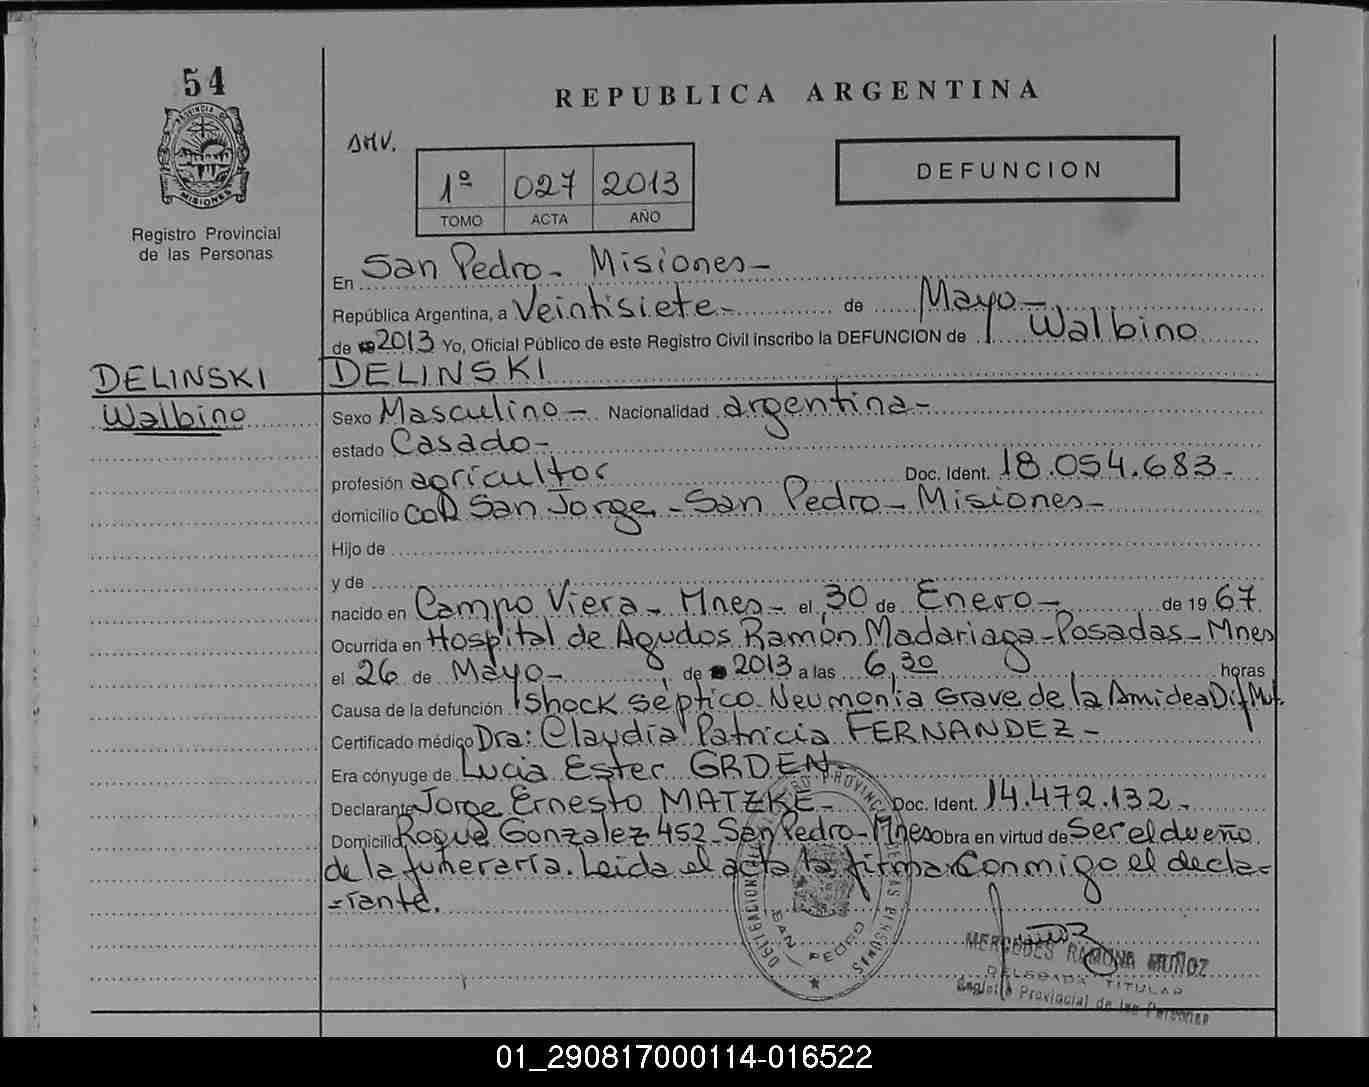 54
PROVINCIA DE
MISIONES
Registro Provincial
de las Personas
REPUBLICA ARGENTINA
DEFUNCION
1º 027 2013
TOMO ACTA AÑO
En San Pedro - Misiones -
República Argentina, a Veintisiete - de Mayo -
de 2013 Yo, Oficial Público de este Registro Civil inscribo la DEFUNCION de Walbino
DELINSKI DELINSKI
Walbino Sexo Masculino - Nacionalidad argentina -
estado Casado -
profesión agricultor Doc. Ident. 18.054.683 -
domicilio San Jorge - San Pedro - Misiones -
Hijo de
y de
nacido en Campo Viera - Mnes - el 30 de Enero - de 19 67
Ocurrida en Hospital de Agudos Ramón Madariaga - Posadas - Mnes
el 26 de Mayo - de 2013 a las 6,30 horas
Causa de la defunción Shock séptico Neumonía Grave de la
Certificado médico Dra: Claudia Patricia FERNANDEZ -
Era cónyuge de Lucia Ester GRDEN -
Declarante Jorge Ernesto MATZKE - Doc. Ident. 14.472.132 -
Domicilio Roque Gonzalez 452 San Pedro - Mnes Obra en virtud de Ser el dueño
de la funeraria. Leida el acta la firma Conmigo el decla=
=rante.
SAN PEDRO
MERCEDES RAMONA MUÑOZ
DELEGADA TITULAR
Registro Provincial de las Personas
01_290817000114-016522